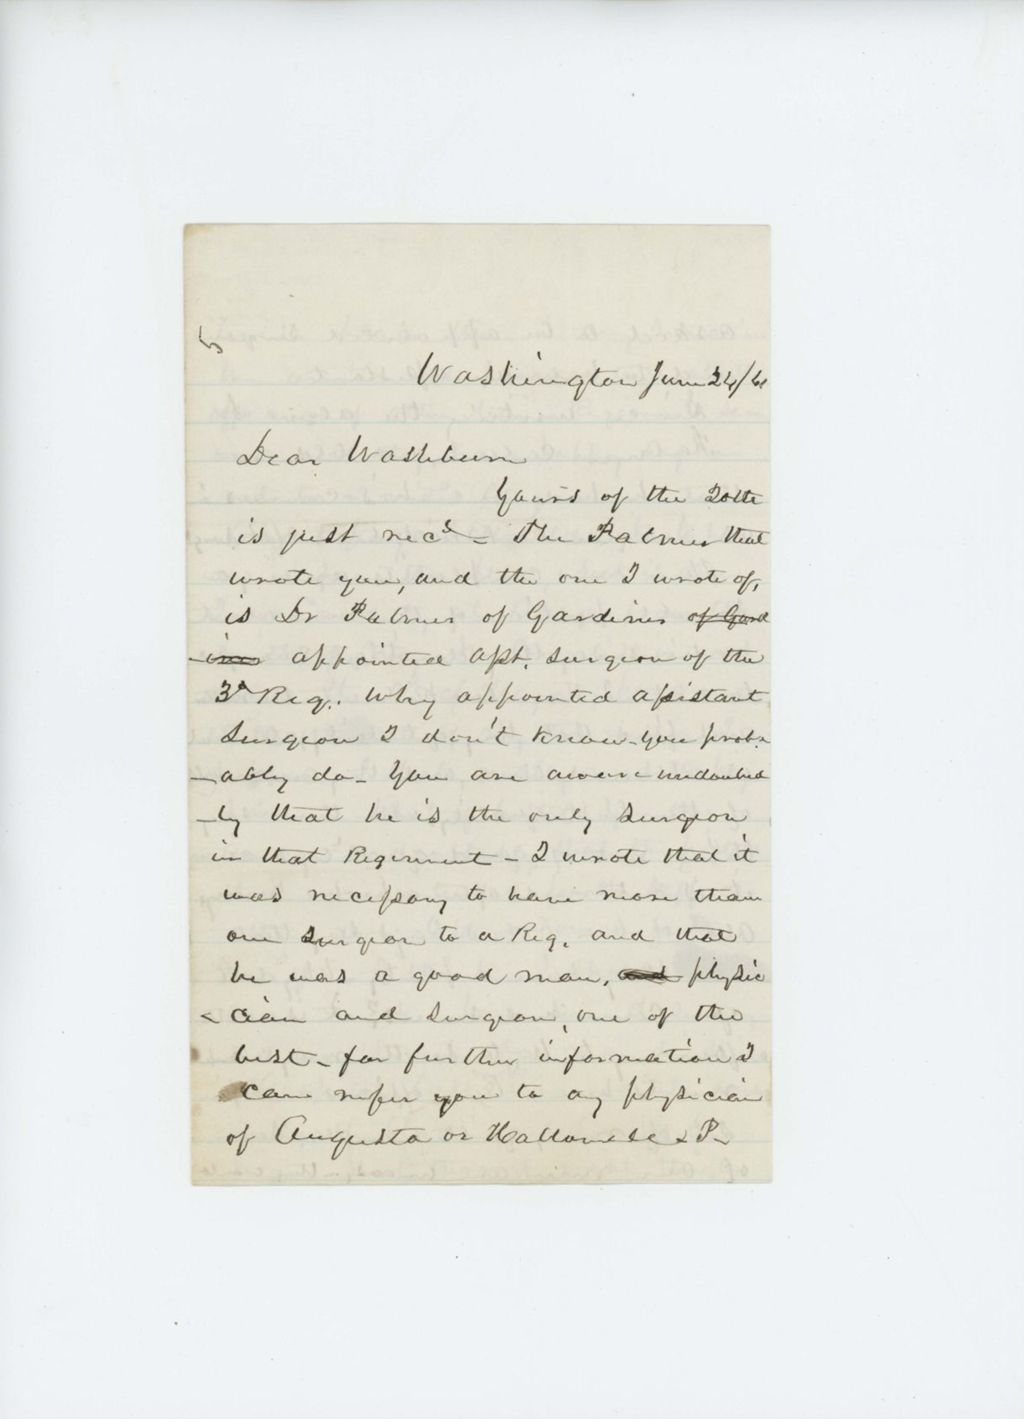 5
Washington June 24/61
Dear Washburn
Yours of the 20th
is just recd - The Palmer that
wrote you, and the one I wrote of,
is Dr Palmer of Gardiner of Gard
-iner appointed asst. surgeon of the
3d Reg. Why appointed assistant
surgeon I don't know - you prob-
-ably do - You are aware undoubted
-ly that he is the only surgeon
in that Regiment - I wrote that it
was necessary to have more than
one surgeon to a Reg. and that
he was a good man, and physic
-cian and surgeon, one of the
best - for further information I
can refer you to any physician
of Augusta or Hallowell & P-